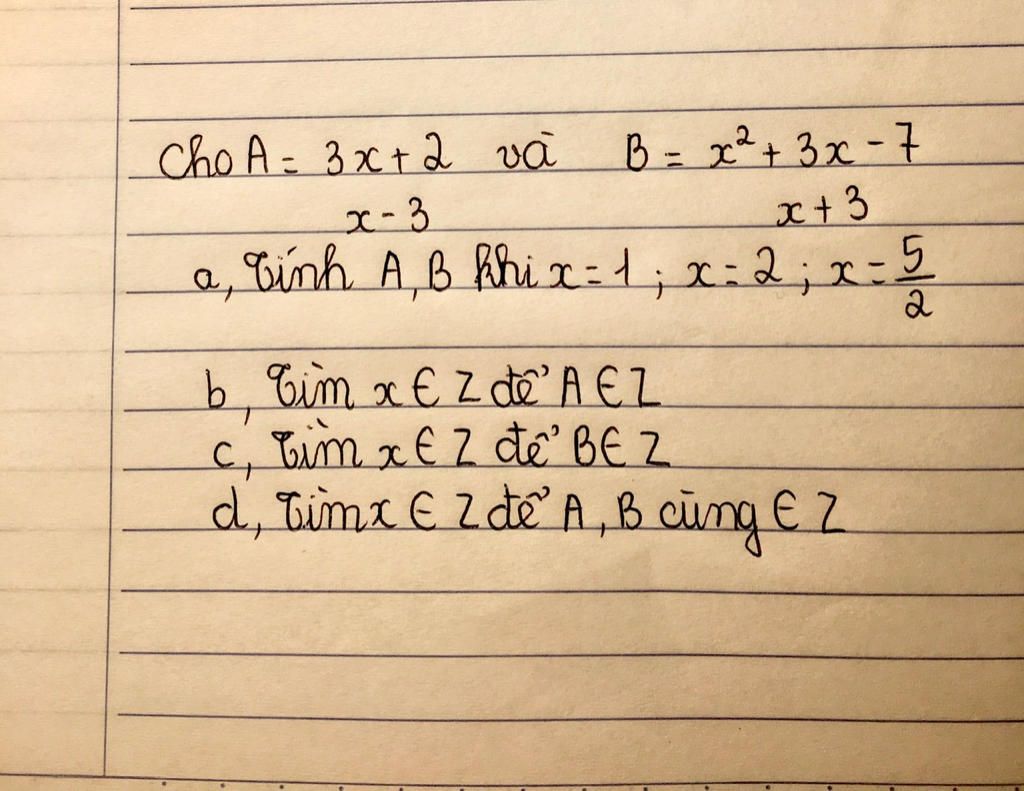 Cho A = 3x + 2 và B = x² + 3x - 7
x - 3 x + 3
a, Tính A, B khi x = 1 ; x = 2 ; x = 5/2
b, Tìm x ∈ Z để A ∈ Z
c, Tìm x ∈ Z để B ∈ Z
d, Tìm x ∈ Z để A, B cùng ∈ Z